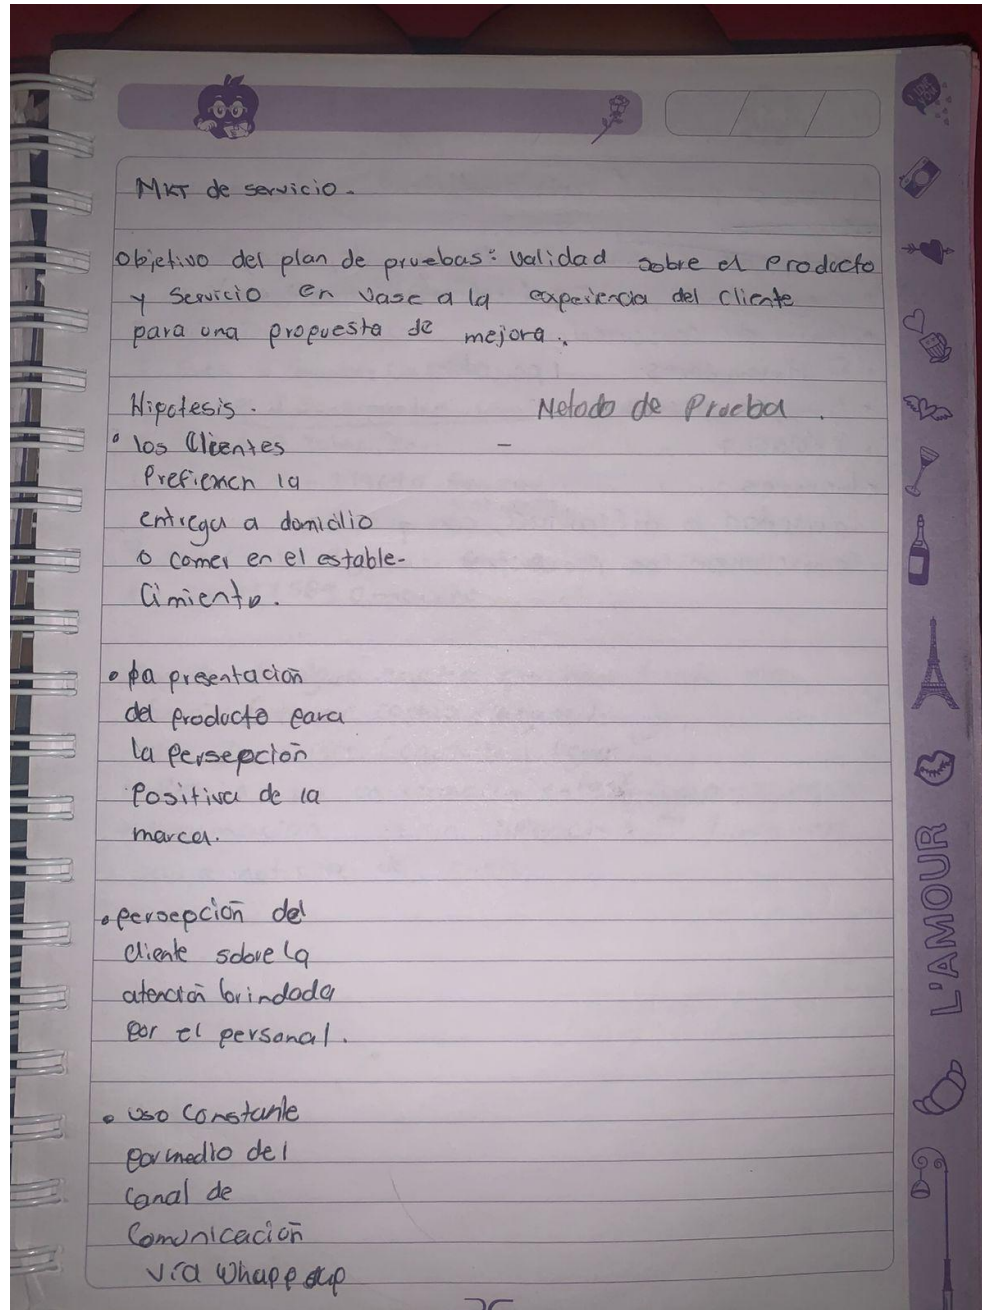 I LOVE YOU!
MKT de servicio.
Objetivo del plan de pruebas: Validad sobre el Producto
y Servicio en vase a la experiencia del Cliente
para una propuesta de mejora.
Hipotesis. Metodo de Prueba.
• los Clientes -
Prefieren la
entrega a domicilio
o comer en el estable-
Cimiento.
• la presentación
del Producto para
la Persepción
Positiva de la
marca.
• persepción del
cliente sobre la
atención brindada
por el personal.
• uso constante
por medio del
canal de
Comunicación
vía Whapp
L'AMOUR